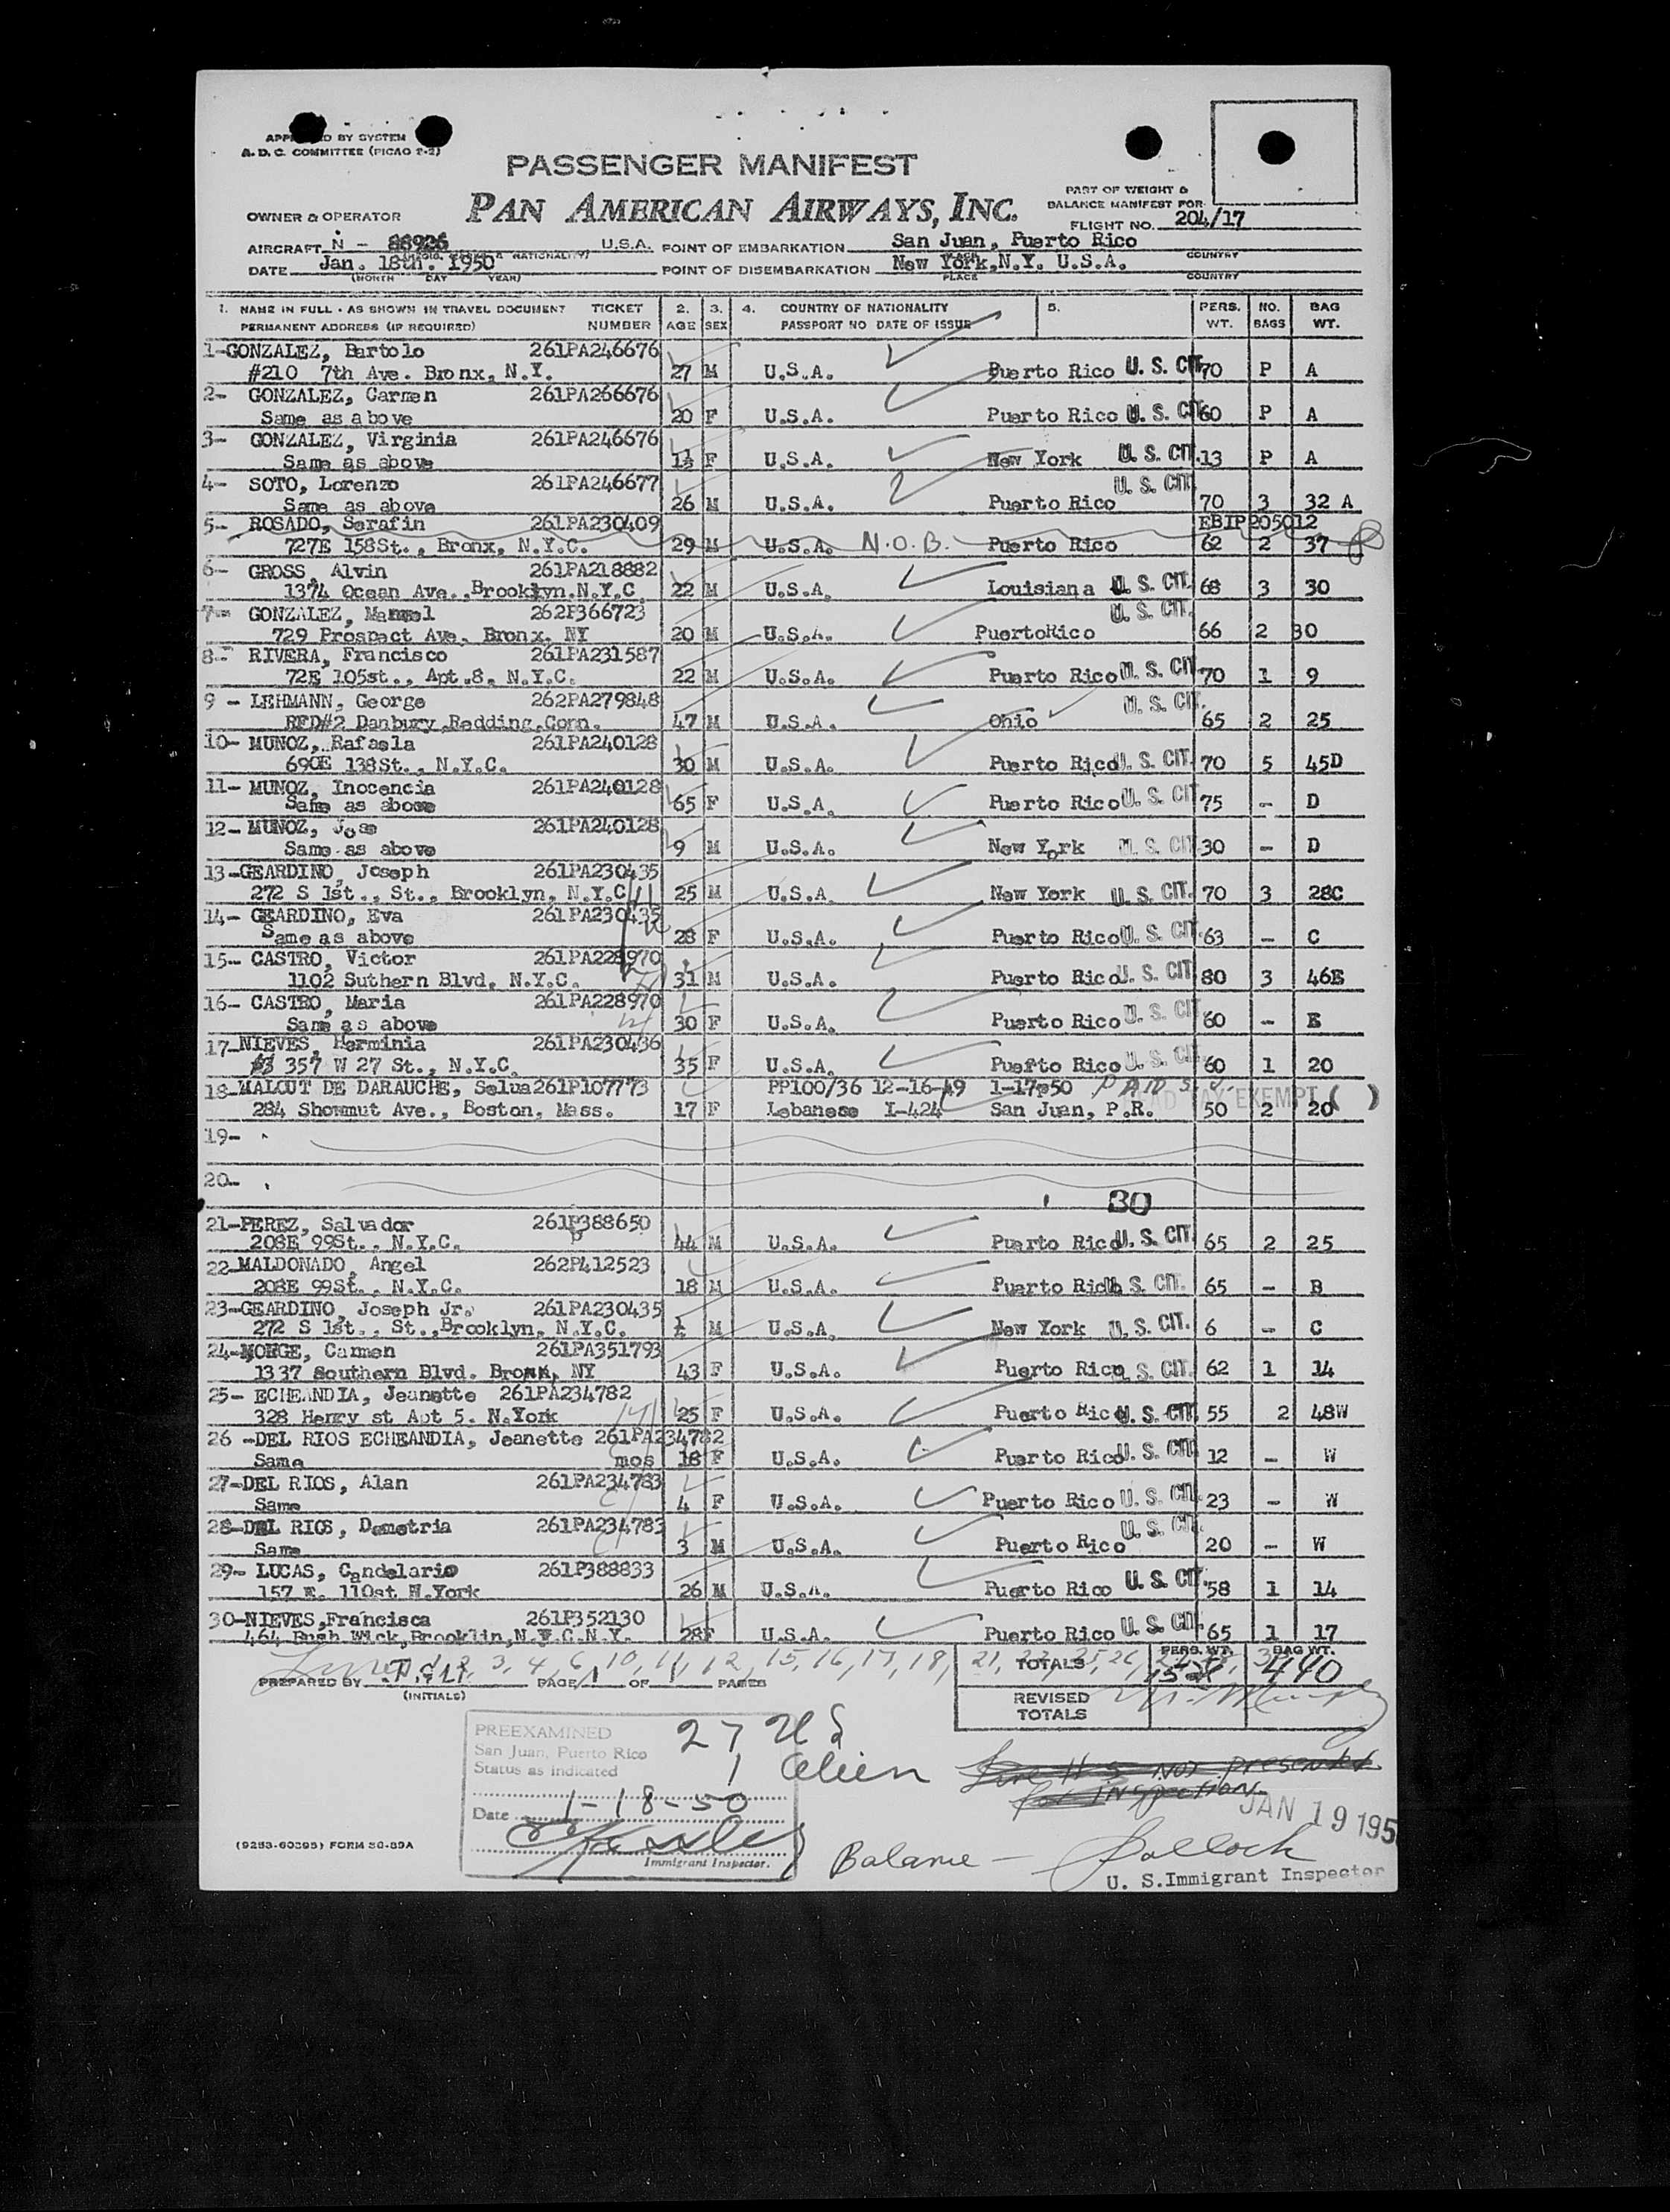 APPROVED BY SYSTEM
A. D. C. COMMITTEE (PICAO P-2)
PASSENGER MANIFEST
PART OF WEIGHT &
BALANCE MANIFEST FOR
OWNER & OPERATOR PAN AMERICAN AIRWAYS, INC.
FLIGHT NO. 204/17
AIRCRAFT N - 88926 U.S.A. POINT OF EMBARKATION San Juan, Puerto Rico
COUNTRY
DATE Jan. 18th. 1950 POINT OF DISEMBARKATION New York,N.Y. U.S.A.
(MONTH DAY YEAR) PLACE COUNTRY
1. NAME IN FULL - AS SHOWN IN TRAVEL DOCUMENT TICKET 2. 3. 4. COUNTRY OF NATIONALITY 5. PERS. NO. BAG
PERMANENT ADDRESS (IF REQUIRED) NUMBER AGE SEX PASSPORT NO DATE OF ISSUE WT. BAGS WT.
1-GONZALEZ, Bartolo 261PA246676
#210 7th Ave. Bronx, N.Y. 27 M U.S.A. Puerto Rico U. S. CIT. 70 P A
2- GONZALEZ, Carmen 261PA266676
Same as above 20 F U.S.A. Puerto Rico U. S. CIT. 60 P A
3- GONZALEZ, Virginia 261PA246676
Same as above 1½ F U.S.A. New York U. S. CIT. 13 P A
4- SOTO, Lorenzo 261PA246677 U. S. CIT.
Same as above 26 M U.S.A. Puerto Rico 70 3 32 A
5- ROSADO, Serafin 261PA230409 EBIP205012
727E 158St., Bronx, N.Y.C. 29 M U.S.A. N.O.B. Puerto Rico 62 2 37
6- GROSS, Alvin 261PA218882
1374 Ocean Ave.,Brooklyn,N.Y.C. 22 M U.S.A. Louisiana U. S. CIT. 68 3 30
7- GONZALEZ, Manuel 262P366723 U. S. CIT.
729 Prospect Ave. Bronx, NY 20 M U.S.A. PuertoRico 66 2 30
8- RIVERA, Francisco 261PA231587
72E 105st., Apt.8. N.Y.C. 22 M U.S.A. Puerto Rico U. S. CIT 70 1 9
9 - LEHMANN, George 262PA279848 U. S. CIT.
RFD#2 Danbury,Redding,Conn. 47 M U.S.A. Ohio 65 2 25
10- MUNOZ, Rafaela 261PA240128
690E 138St., N.Y.C. 30 M U.S.A. Puerto Rico U. S. CIT. 70 5 45D
11- MUNOZ, Inocencia 261PA240128
Same as above 65 F U.S.A. Puerto Rico U. S. CIT 75 - D
12- MUNOZ, Jose 261PA240128
Same as above 9 M U.S.A. New York U. S. CIT 30 - D
13-GEARDINO, Joseph 261PA230435
272 S 1st., St., Brooklyn, N.Y.C 25 M U.S.A New York U. S. CIT. 70 3 28C
14- GEARDINO, Eva 261PA230435
Same as above 28 F U.S.A. Puerto Rico U. S. CIT. 63 - C
15- CASTRO, Victor 261PA228970
1102 Suthern Blvd, N.Y.C. 31 M U.S.A. Puerto Rico U. S. CIT 80 3 46E
16- CASTRO, Maria 261PA228970
Same as above 30 F U.S.A. Puerto Rico U. S. CIT 60 - E
17-NIEVES, Herminia 261PA230436
#3 357 W 27 St., N.Y.C. 35 F U.S.A. Puerto Rico U. S. CIT. 60 1 20
18-MALCUT DE DARAUCHE, Selua261P107773 PP100/36 12-16-49 1-17-50 PAID
284 Shommut Ave., Boston, Mass. 17 F Lebanese I-424 San Juan, P.R. HEAD TAX EXEMPT ( ) 50 2 20
19-
20-
30
21-PEREZ, Salvador 261P388650
208E 99St., N.Y.C. 44 M U.S.A. Puerto Rico U. S. CIT 65 2 25
22-MALDONADO, Angel 262P412523
208E 99St., N.Y.C. 18 M U.S.A. Puerto Rico U. S. CIT. 65 - B
23-GEARDINO, Joseph Jr. 261PA230435
272 S 1st., St.,Brooklyn, N.Y.C. M U.S.A. New York U. S. CIT. 6 - C
24-MONGE, Carmen 261PA351793
1337 Southern Blvd. Bronx, NY 43 F U.S.A. Puerto Rico U. S. CIT. 62 1 14
25- ECHEANDIA, Jeanette 261PA234782
328 Henry st Apt 5. N.York 25 F U.S.A. Puerto Rico U. S. CIT. 55 2 48W
26 -DEL RIOS ECHEANDIA, Jeanette 261PA234782
Same mos 18 F U.S.A. Puerto Rico U. S. CIT 12 - W
27-DEL RIOS, Alan 261PA234783
Same 4 F U.S.A. Puerto Rico U. S. CIT. 23 - W
28-DEL RIOS, Demetria 261PA234783 U. S. CIT.
Same 3 M U.S.A. Puerto Rico 20 - W
29- LUCAS, Candelario 261P388833
157 E. 110st N.York 26 M U.S.A. Puerto Rico U. S. CIT. 58 1 14
30-NIEVES,Francisca 261P352130
464 Bush Wick,Brooklin,N.Y.C.N.Y. 28F U.S.A. Puerto Rico U. S. CIT. 65 1 17
Lines 1, 2, 3, 4, 6, 10, 11, 12, 15, 16, 17, 18, 21, 25, 26,
PREPARED BY PAGE 1 OF 1 PAGES TOTALS PERS. WT. BAG WT. 440
(INITIALS)
REVISED
TOTALS
PREEXAMINED
San Juan, Puerto Rico
Status as indicated
27 US
1 Alien
Date 1-18-50
Immigrant Inspector.
Line # 5 Not presented
for inspection
JAN 19 195
(9283-60395) FORM SO-89A
Balance - Pollock
U. S.Immigrant Inspector